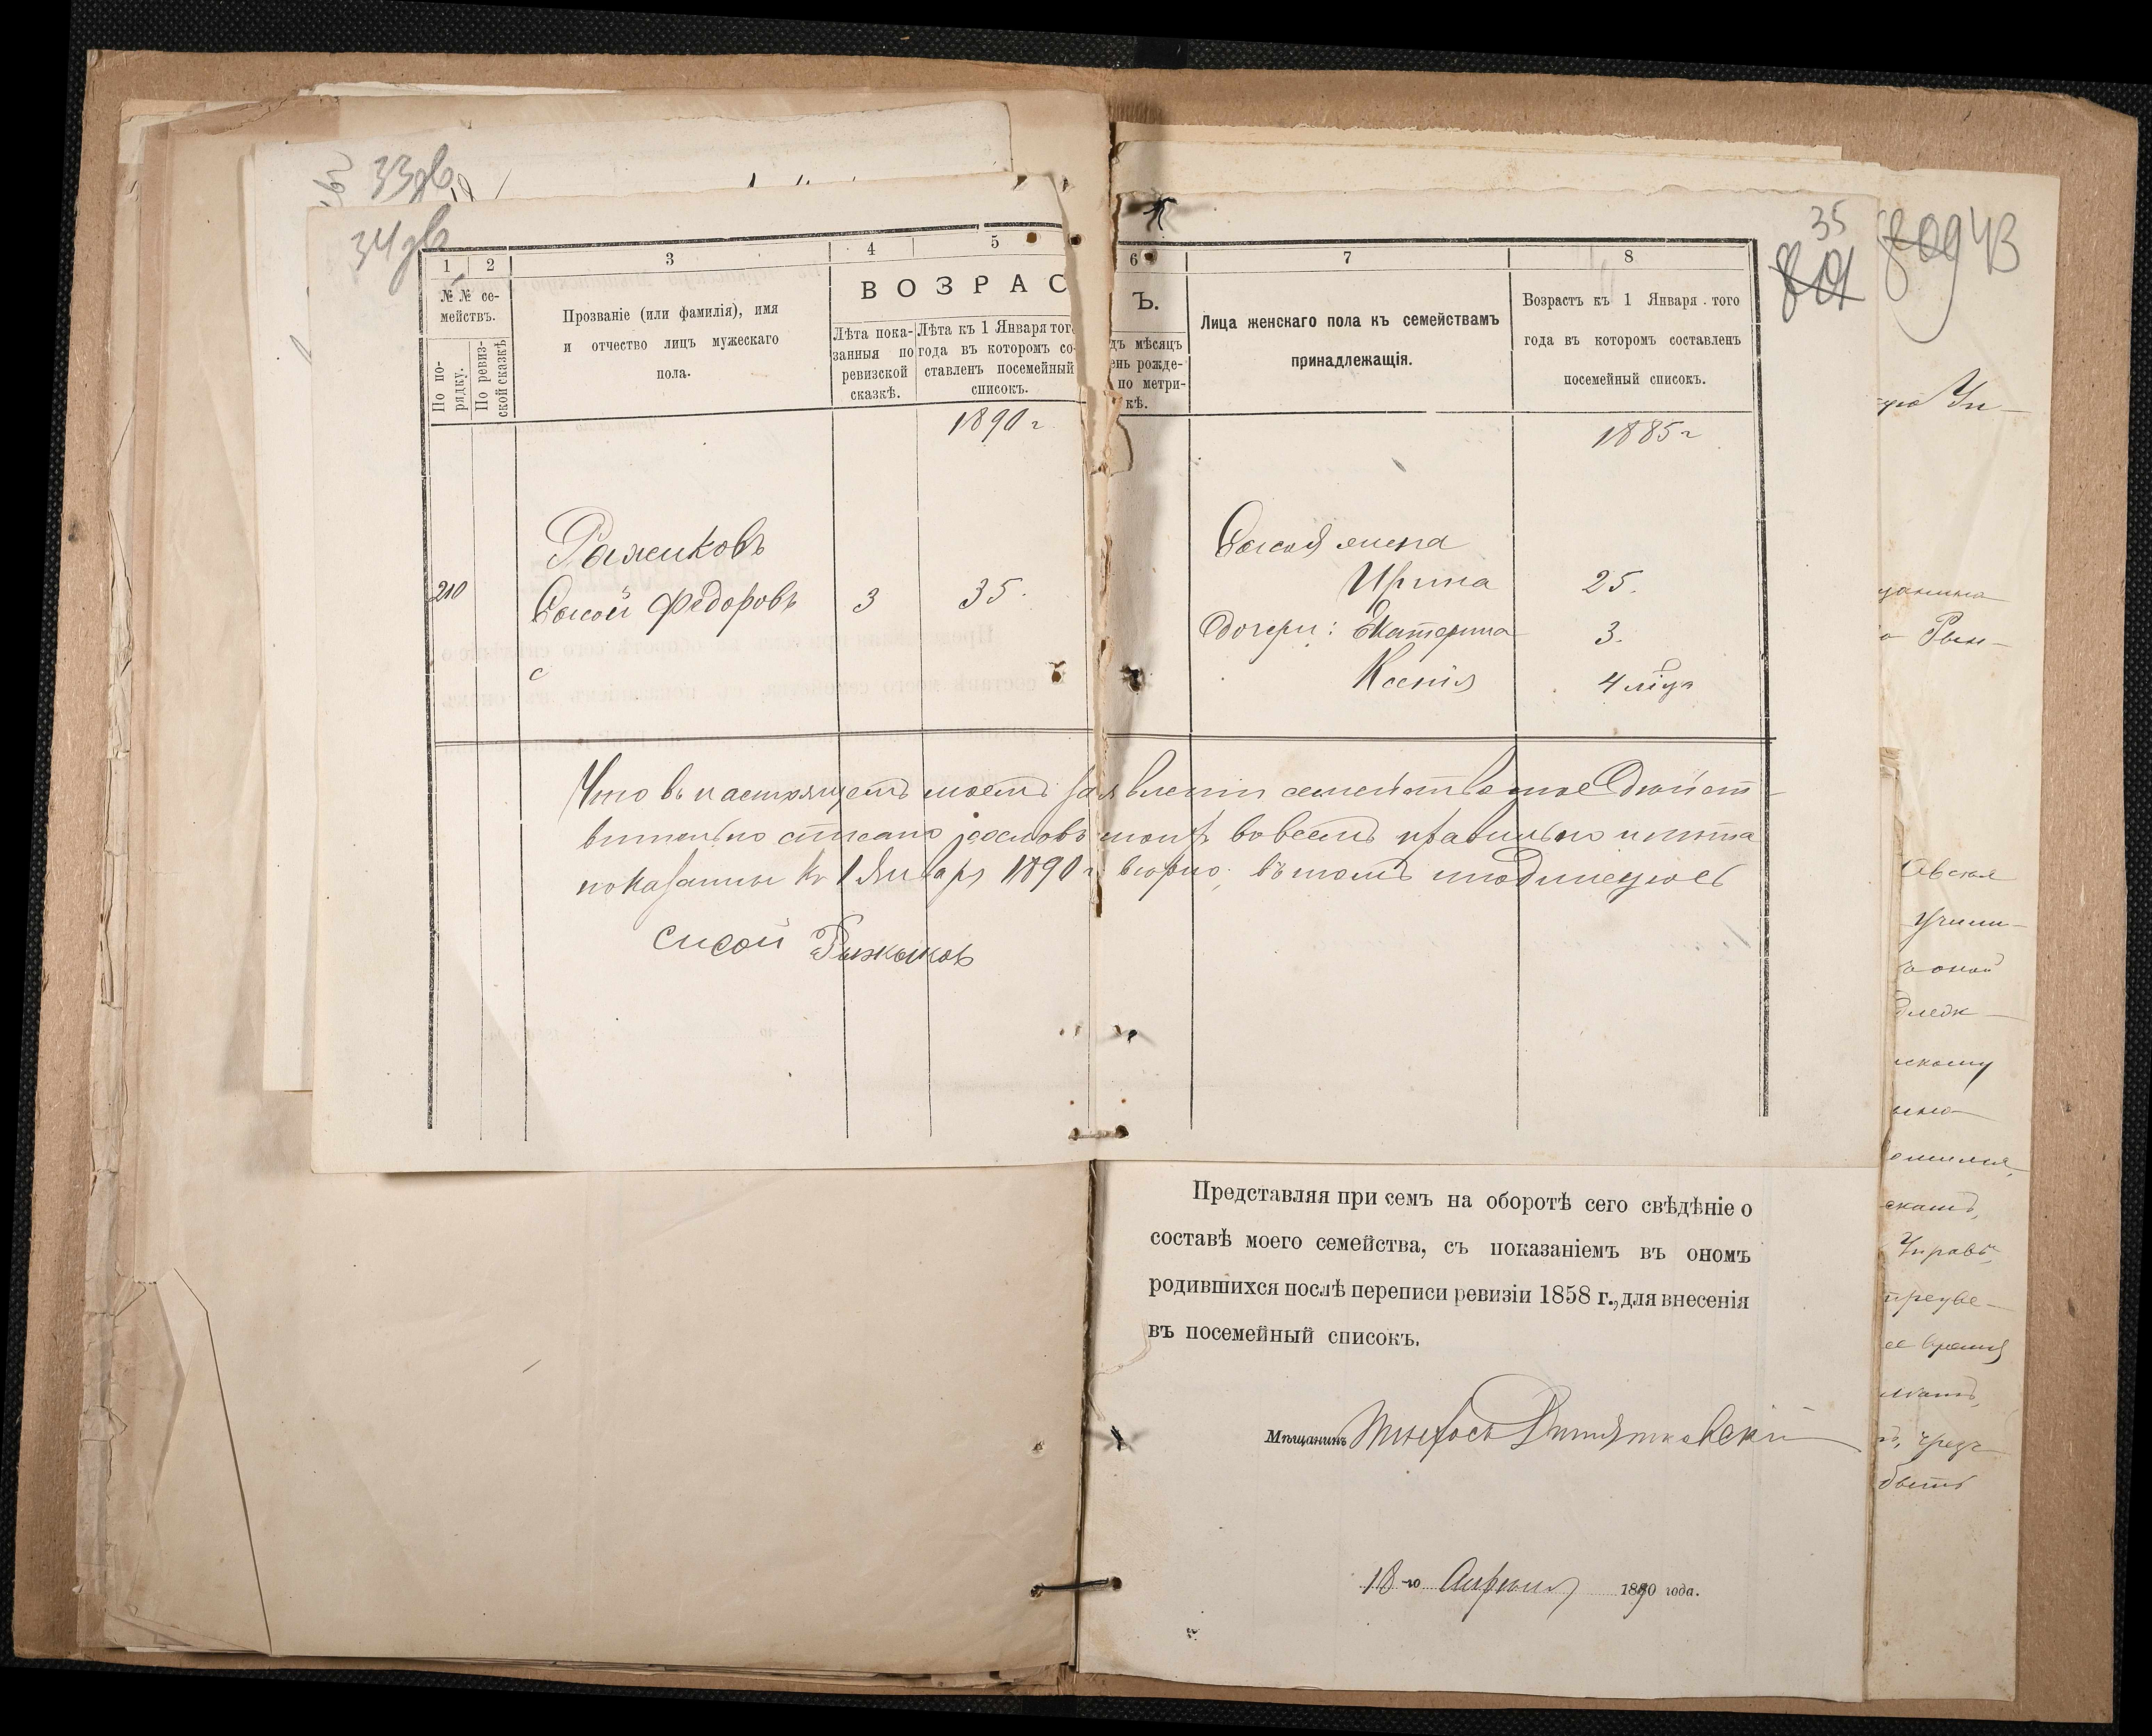 33 об
34 об
35
801
809 43
1 2 3 4 5 6 7 8
№№ се-
мействъ.
По по-
рядку.
По ревиз-
ской сказкѣ
Прозваніе (или фамилія), имя
и отчество лицъ мужескаго
пола.
ВОЗРАС
Лѣта пока-
занныя по
ревизской
сказкѣ.
Лѣта къ 1 Января того
года въ которомъ со-
ставленъ посемейный
списокъ.
Ъ.
дъ мѣсяцъ
ень рожде-
по метри-
кѣ.
Лица женскаго пола къ семействамъ
принадлежащія.
Возрастъ къ 1 Января того
года въ которомъ составленъ
посемейный списокъ.
1890 г
1885 г
Рыжиковъ
210 Сысой Федоровъ 3 35.
Сысоя жена
Ирина 25.
Дочери: Екатерина 3.
Ксенія 4 мѣся
с
Что въ настоящемъ моемъ заявленіи семейство мое дѣйст-
вительно списано со словъ моихъ во всемъ правильно и лѣта
показанны къ 1 Января 1890 г вѣрно, въ томъ и подписуюсь
сисой Рижиков
Представляя при семъ на оборотѣ сего свѣдѣніе о
составѣ моего семейства, съ показаніемъ въ ономъ
родившихся послѣ переписи ревизіи 1858 г., для внесенія
въ посемейный списокъ.
Мѣщанинъ
18-го Апрѣля 1890 года.
Рыж-
Учили-
оной
скому
Управы,
время
чрезъ
быть